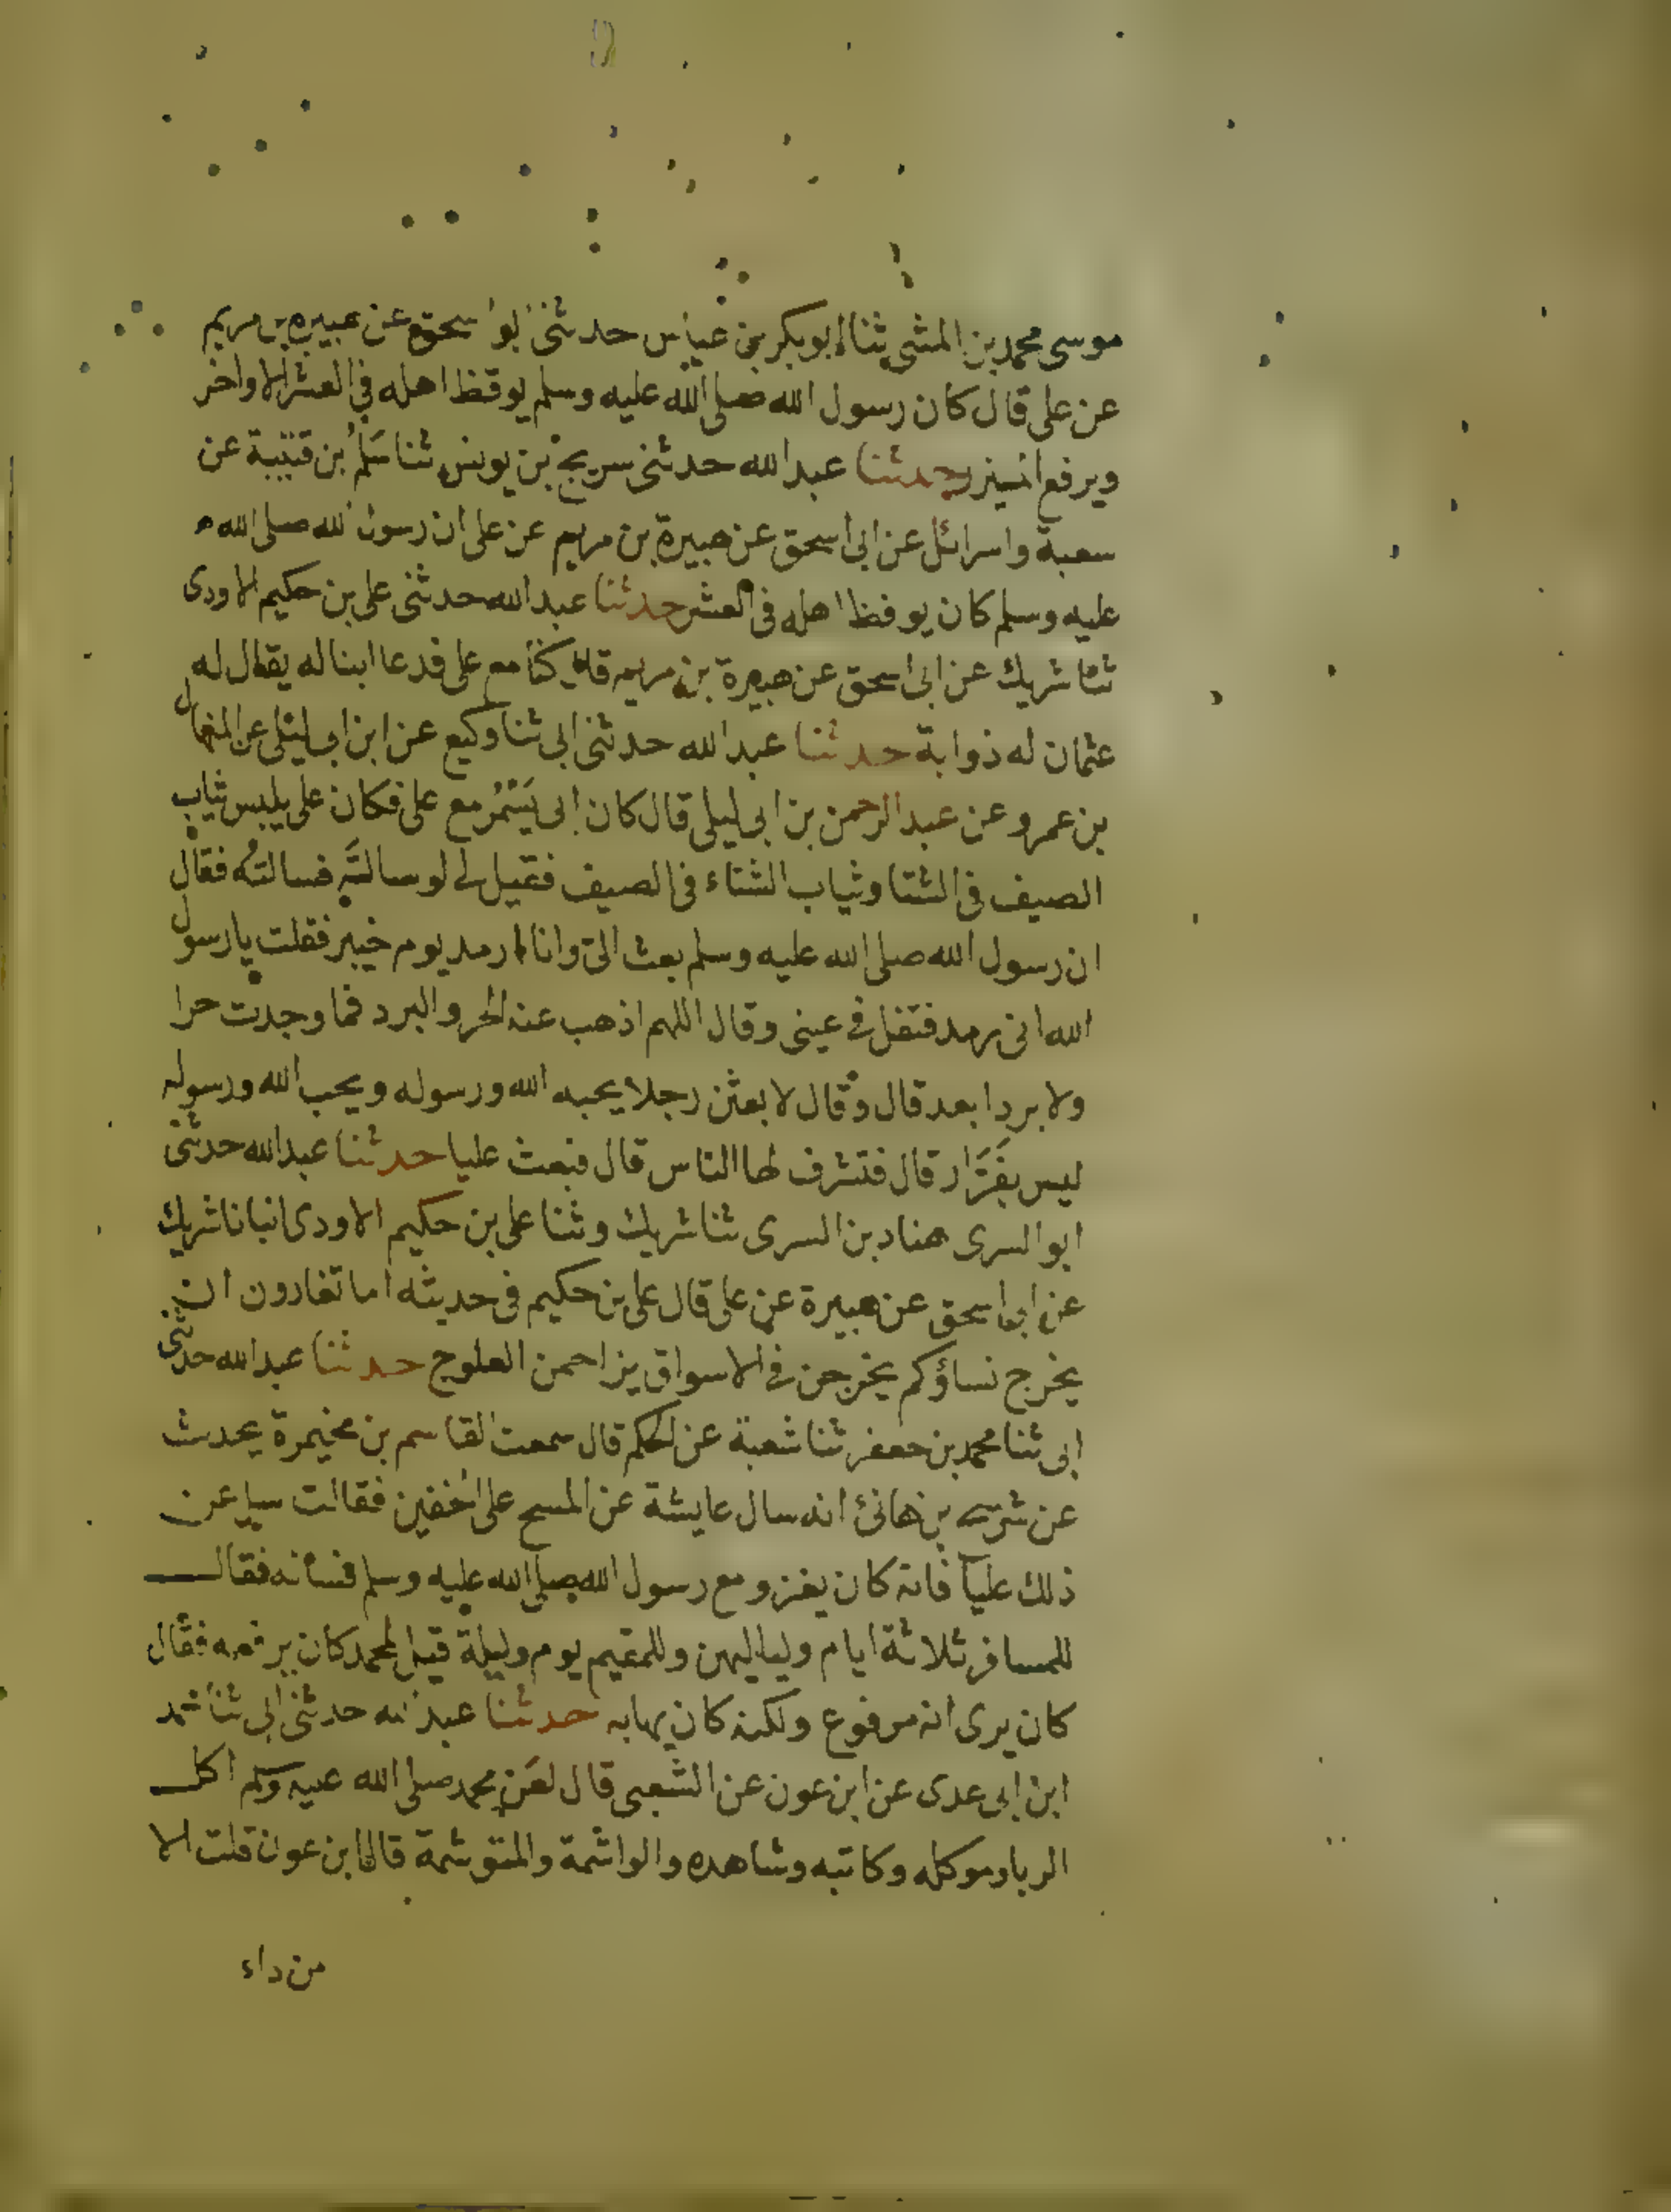 موسى محمد بن المثنى ثنا ابو بكر بن عياش حدثنى ابو اسحق عن هبيرة بن مريم
عن على قال كان رسول الله صلى الله عليه وسلم يوقظ اهله فى العشر الاواخر
ويرفع المئزر حدثنا عبد الله حدثنى سريج بن يونس ثنا سَلْمُ بن قتيبة عن
سعبة واسرائل عن ابى اسحق عن هبيرة بن مريم عن على ان رسول الله صلى الله
عليه وسلم كان يوقظ اهله فى العشر حدثنا عبد الله حدثنى على بن حكيم الاودى
ثنا شريك عن ابى اسحق عن هبيرة بن مريم قال كنا مع على فدعا ابنا له يقال له
عثمان له ذوابة حدثنا عبد الله حدثنى ابى ثنا وكيع عن ابن ابى ليلى عن المنهال
بن عمرو عن عبد الرحمن بن ابى ليلى قال كان ابى يَسْمُرُ مع على فكان على يلبس ثياب
الصيف فى الشتا وثياب الشتاء فى الصيف فقيل لى لو سالتَه فسالتُه فقال
ان رسول الله صلى الله عليه وسلم بعث الىّ وانا ارمد يوم خيبر فقلت يا رسول
الله انى رمد فتفل فى عينى وقال اللهم اذهب عنه الحر والبرد فما وجدت حرا
ولا بردا بعد قال وقال لابعثن رجلا يحبه الله ورسوله ويحب الله ورسوله
ليس بفَرَّار قال فتشرف لها الناس قال فبعث عليا حدثنا عبد الله حدثنى
ابو السرى هناد بن السرى ثنا شريك وثنا على بن حكيم الاودى انبانا شريك
عن ابى اسحق عن هبيرة عن على قال على بن حكيم فى حديثه اما تغارون ان
يخرج نساؤكم يخرجن فى الاسواق يزاحمن العلوج حدثنا عبد الله حدثنى
ابى ثنا محمد بن جعفر ثنا شعبة عن الحكم قال سمعت القاسم بن مخيمرة يحدث
عن شريح بن هانئ انه سال عايشة عن المسح على الخفين فقالت سل عن
ذلك علياً فانه كان يغزو مع رسول الله صلى الله عليه وسلم فسأله فقال
للمسافر ثلاثة ايام ولياليهن وللمقيم يوم وليلة قيل لمحمد كان يرفعه فقال
كان يرى انه مرفوع ولكنه كان يهابه حدثنا عبد الله حدثنى ابى ثنا محمد
ابن ابى عدى عن ابن عون عن الشعبى قال لعَن محمد صلى الله عليه وسلم اكل
الربا وموكله وكاتبه وشاهده والواشمة والمتوشمة قال ابن عون قلت الا
من داء